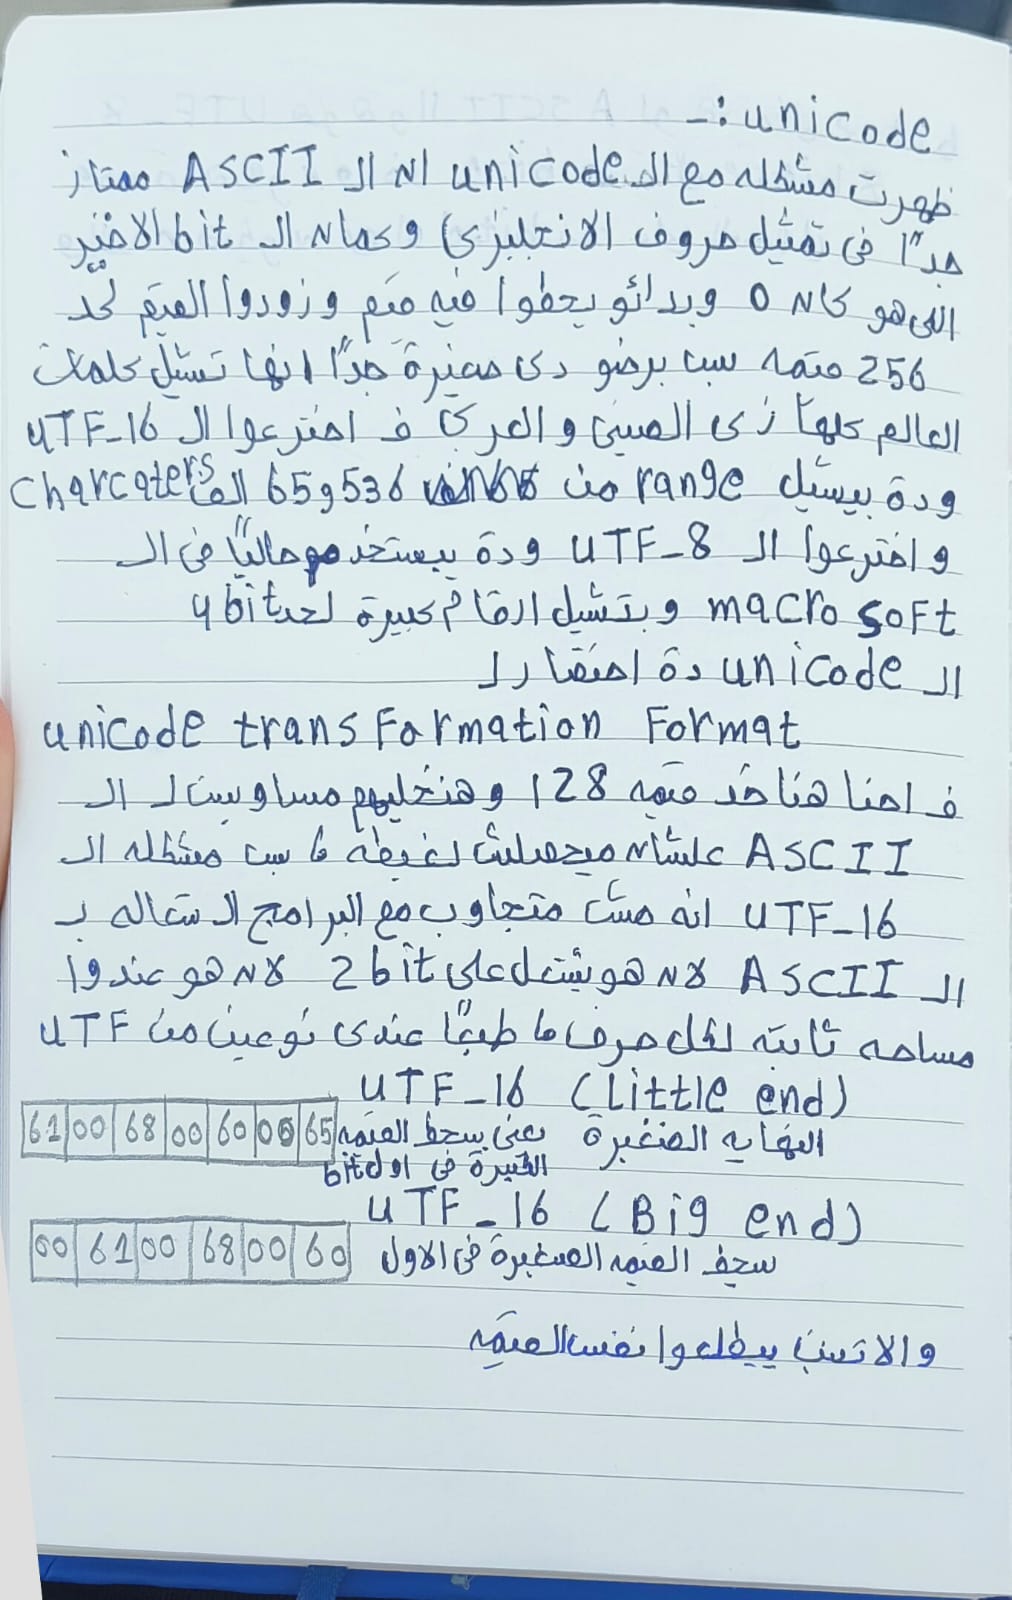 unicode :-
ظهرت مشكله مع ال unicode ان ال ASCII ممتاز
جداً في تمثيل حروف الانجليزي وكمان ال bit الاخير
اللي هو كان 0 وبدائو يحطوا فيه قيم وزودوا القيم لحد
256 قيمه بس برضو دي صغيرة جداً انها تشيل كلمات
العالم كلها زي الصيني والعربي ف اخترعوا ال UTF_16
ودة بيشيل range من 536و65 الف Charcaters
واخترعوا ال UTF_8 ودة بيستخدم حالياً في ال
macro soft وبتشيل ارقام كبيرة لحد 4 bit
ال unicode دة اختصار ل
unicode transFormation Format
ف احنا هناخد قيمه 128 وهنخليهم مساويين ل ال
ASCII علشان ميحصلش لغبطه بس مشكله ال
UTF_16 انه مش متجاوب مع البرامج ال شغاله ب
ال ASCII لان هو بيشتغل على 2 bit لان هو عندوا
مساحه ثابته لكل حرف طبعاً عندي نوعين من UTF
UTF_16 (Little end)
النهايه الصغيرة يعني بيحط القيمه
الكبيرة في اول bit
61 00 68 00 60 00 65
UTF_16 (Big end)
بيحط القيمه الصغيرة في الاول
00 61 00 68 00 60
والاتنين بيطلعوا نفس القيمه